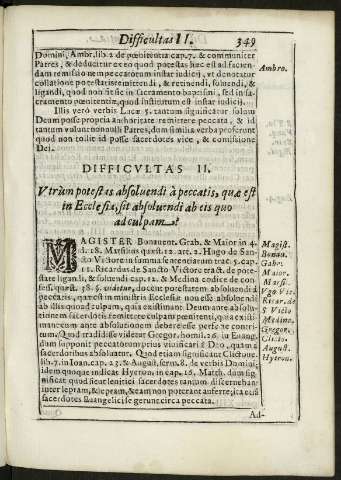 Difficultas II. 349
Domini, Ambr. lib. 2 de pœnitentia cap. 7. & communiter
Patres, & deducitur ex eo quod potestas hæc est ad facien-
dam remissionem peccatorum instar iudicij, vt denotatur
collatione potestatis remittendi, & retinendi, soluendi, &
ligandi, quod non sit sic in Sacramento baptismi, sed in sa-
cramento pœnitentiæ, quod institutum est instar iudicij.
Illis verò verbis Lucæ 5. tantum significatur solum
Deum posse propria authoritate remittere peccata, & id
tantum volunt nonnulli Patres, dum similia verba proferunt
quod non tollit id posse sacerdotes vice, & comissione
Dei.
Ambro.
DIFFICVLTAS II.
Vtrùm potestas absoluendi à peccatis, quæ est
in Ecclesia, sit absoluendi ab eis quo
ad culpam?
MAGISTER Bonauent. Grab. & Maior in 4.
d. 18. Marsilius quæst. 12. art. 2. Hugo de San-
cto Victore in summa sententiarum tract. 5. cap.
11. Ricardus de Sancto Victore tract. de pote-
state ligandi, & soluendi cap. 12. & Medina codice de con-
fess. quæst. 38. §. videtur, docent potestatem absoluendi à
peccatis, quæ est in ministris Ecclesiæ non esse absoluendi
ab illis quoad culpam, quia existimant Deum ante absolu-
tionem sacerdotis remittere culpam pœnitenti, quia existi-
mant eum ante absolutionem debere esse perfectè contri-
tum. Quod tradidisse videtur Gregor. homil. 26. in Euang.
dum supponit peccatorem prius viuificari à Deo, quam à
sacerdoribus absoluatur. Quod etiam significant Clictoue.
lib. 7. in Ioan. cap. 23. & August. serm. 8. de verbis Domini,
idem quoque indicat Hyeron. in cap. 16. Matth. dum sig-
nificat quod sicut leuitici sacerdotes tantum discernebant
inter lepram, & lepram, & eam non poterant auferre; ita et
sacerdotes Euangelici se gerunt circa peccata.
Magist.
Bonau.
Gabr.
Maior.
Marsi.
Vgo Vic.
Ricar. de
S. Victo
Medina.
Gregor.
Clicto.
August.
Hyeron.
Ad-